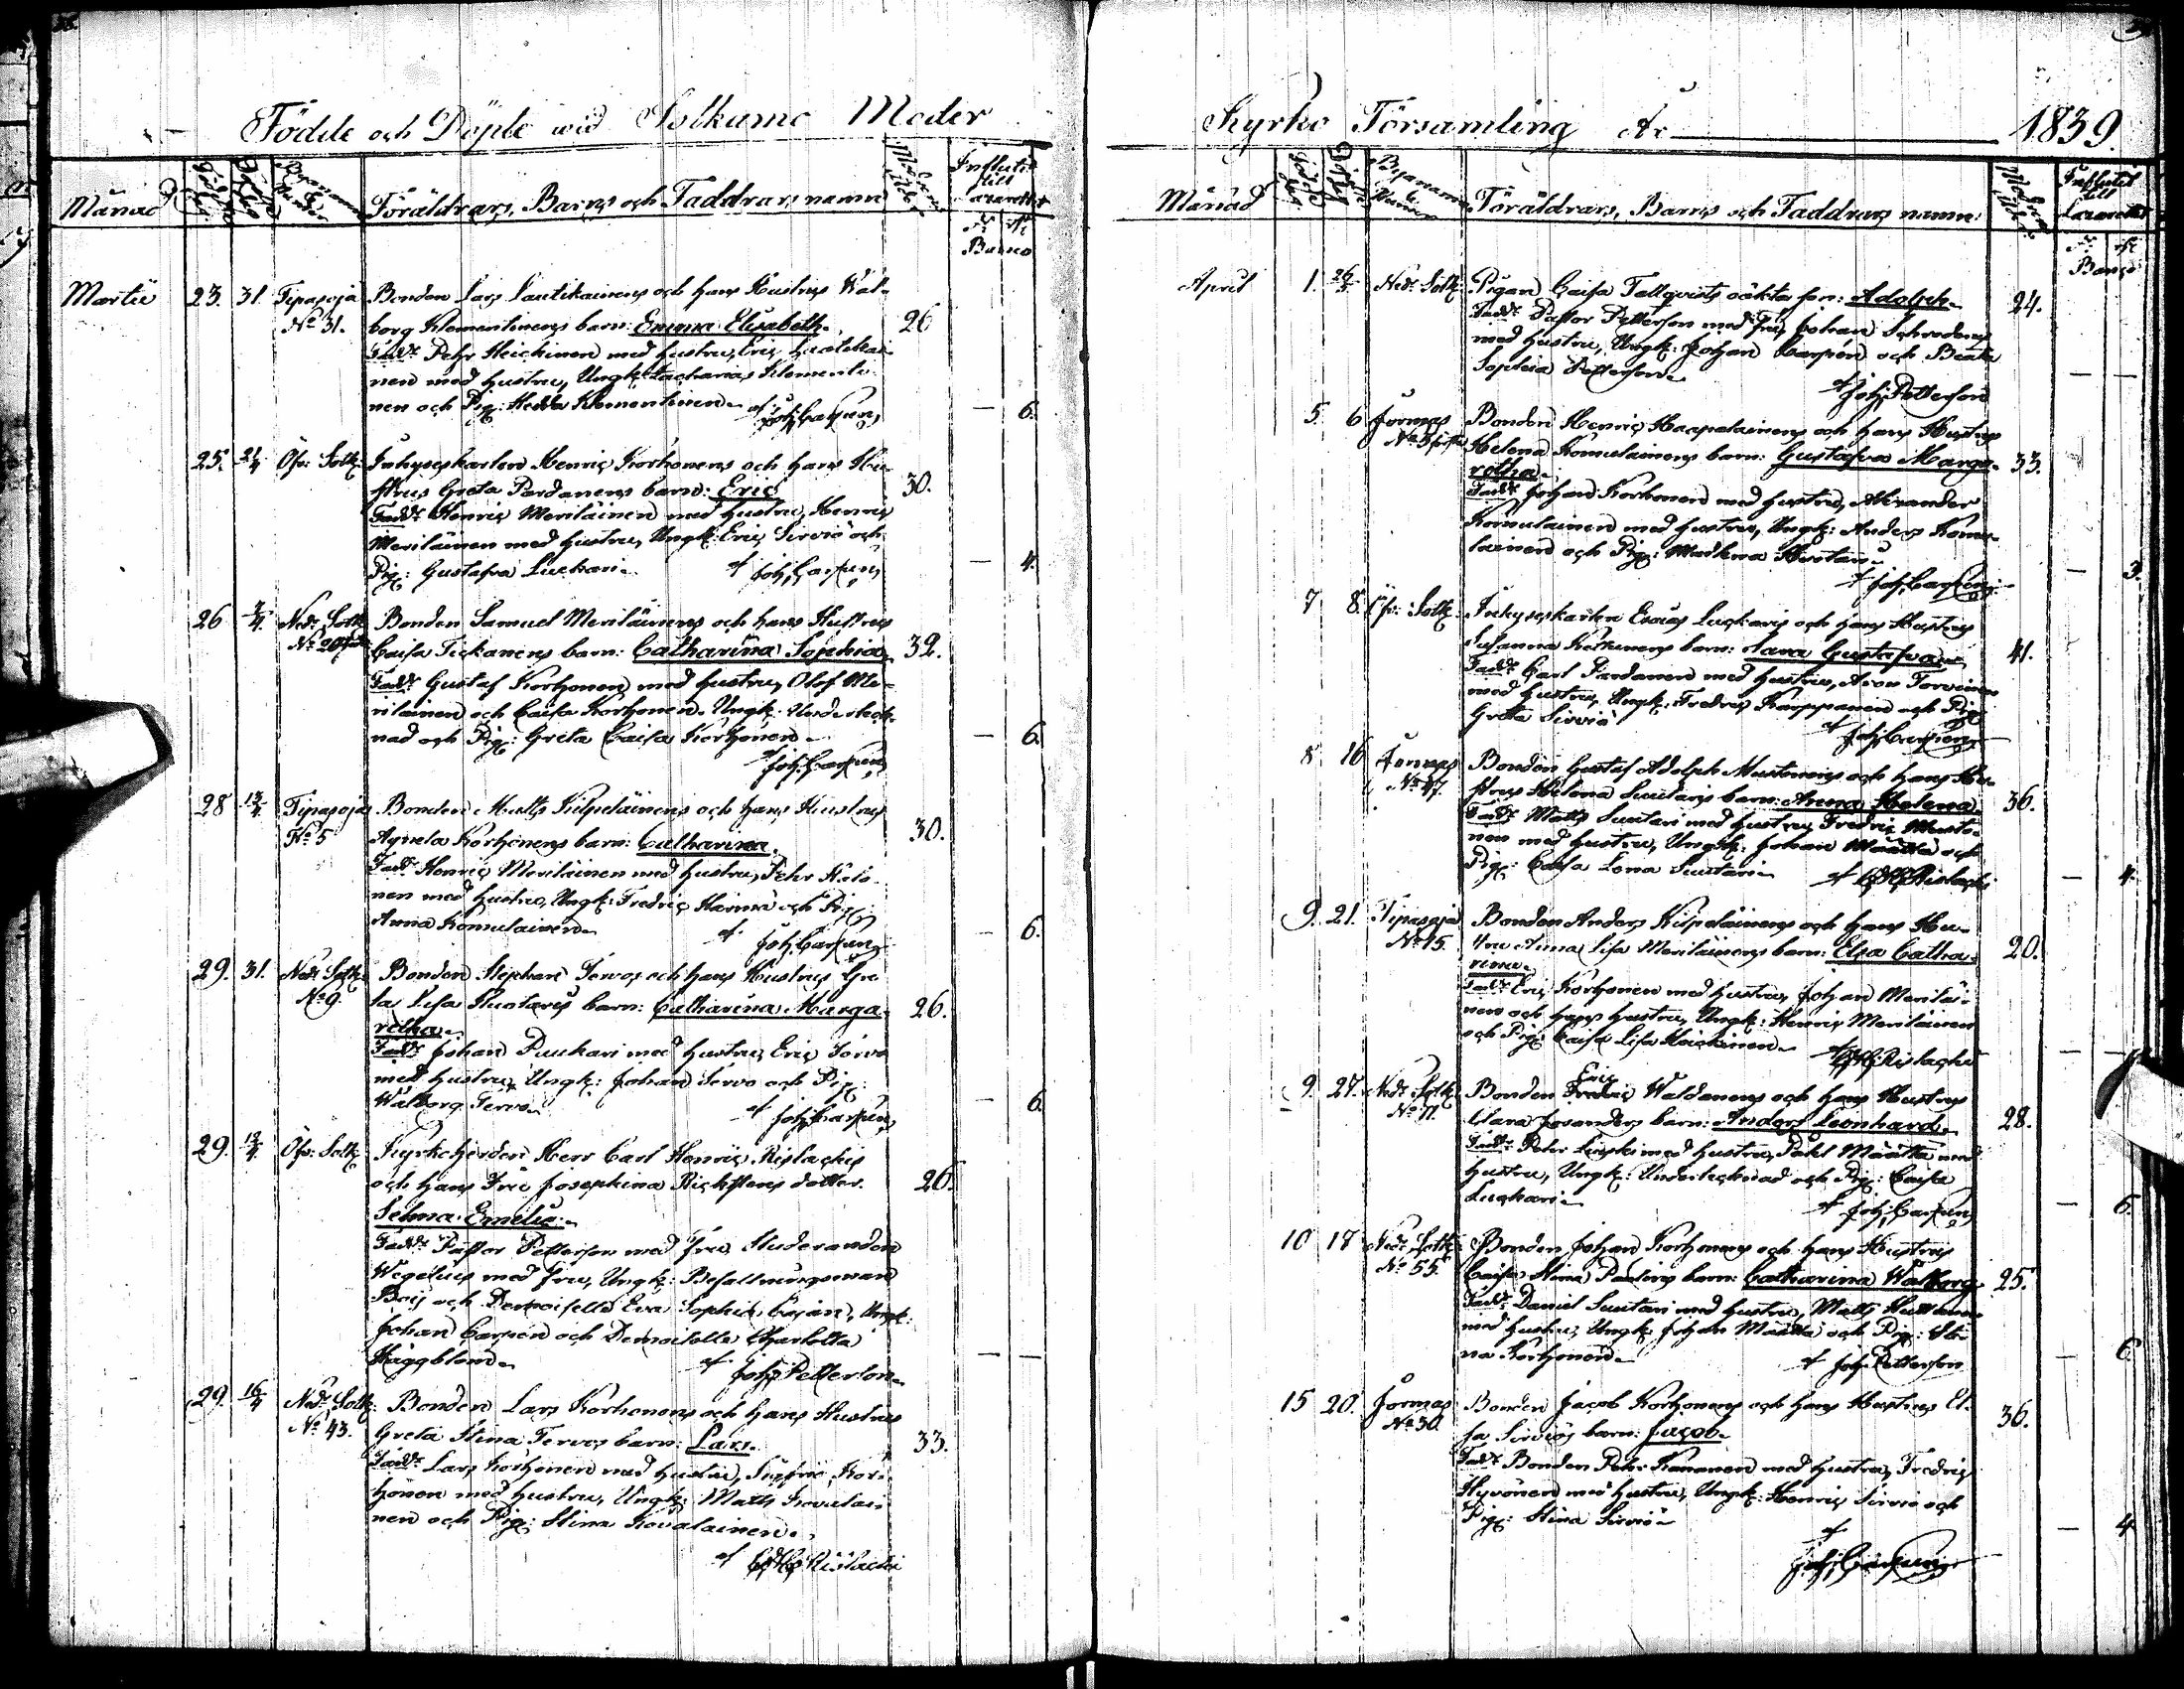 Födde och Döpte wid Sotkamo Moder
Månad
Föräldrars, Barns och Faddrars namn
Influtit till Lazarettet
Banco
Martii 23. 31. Tipasoja Bonden Lars Lautikainens och hans Hustrus Wal-
No 31. borg Klementinens barn: Emma Elisabeth. 26
Fadd: Pehr Heickinen med hustru, Eric
nen med hustru, Ungk: Zacharias Klementi-
nen och Pig: Hedda Klementinen. af Joh: Carpén — 6.
25. 21/4 Öfv: Sotk: Inhyseskarlen Henric Korhonens och hans Hu-
strus Greta Pardanens barn: Eric 30.
Fadd: Henric Meriläinen med hustru, Henric
Meriläinen med hustru, Ungk: Eric Sirviö och
Pig: Gustafva Luckari. af Joh: Carpén — 4.
26 7/4 Ned: Sotk: Bonden Samuel Meriläinens och hans Hustrus
No 20 Caisa Tickanens barn: Catharina Sophia 32.
Fadd: Gustaf Korhonen med hustru, Olof Me-
riläinen och Caisa Korhonen. Ungk: Underteck-
nad och Pig: Greta Caisa Korhonen. — 6.
af Joh: Carpén
28 13/4 Tipasoja Bonden Matts Kilpeläinens och hans Hustrus
No 5 Agneta Korhonens barn: Catharina. 30.
Fadd: Henric Meriläinen med hustru, Pehr Halo-
nen med hustru, Ungk: Fredric Harma och Pig:
Anna Komulainen. af Joh: Carpén — 6.
29. 31. Ned: Sotk: Bonden Stephan Tervos och hans Hustrus Gre-
No 9. ta Lisa Huotaris barn: Catharina Marga- 26.
retha.
Fadd: Johan Puukari med hustru, Eric Tervo
med hustru, Ungk: Johan Tervo och Pig:
Walborg Tervo. af Joh: Carpén — 6.
29. 12/4 Öfv: Sotk: Kyrkoherden Herr Carl Henric Rislachis
och hans Fru Josephina Rickstens dotter. 26.
Selma Emelia.
Fadd: Pastor Petterson med Fru, Studeranden
Wegelius med Fru, Ungk: Befallningsman
Boij och Demoiselle Eva Sophie Cajan, Ungk:
Johan Carpén och Demoiselle Charlotta
Häggblom. af Joh: Petterson. — —
29. 16/4 Ned: Sotk: Bonden Lars Korhonens och hans Hustrus
No 43. Greta Stina Tervos barn: Lars. 33.
Fadd: Lars Korhonen med hustru, Sigfrid Kor-
honen med hustru, Ungk: Matts Kovalai-
nen och Pig: Stina Kovalainen.
af C: H: Rislachi
Kyrko Församling År 1839.
Månad
Föräldrars, Barns och Faddrars namn
Influtit till Lazarettet
Banco
April 1. 26/5 Ned: Sotk: Pigan Caisa Tallqvists oäkta son: Adolph. 24.
Fadd: Pastor Petterson med Fru, Johan Schroderus
med hustru, Ungk: Johan Carpén och Beata
Sophia Petterson. — —
af Joh: Petterson
5. 6 Jormas Bonden Henric Haapalainens och hans Hustrus
No 3 Helena Komulainens barn: Gustafva Marga- 33.
retha.
Fadd: Johan Korhonen med hustru, Alexander
Komulainen med hustru, Ungk: Anders Komu-
lainen och Pig: Madlena — 3.
af Joh: Carpén
7 8. Öfv: Sotk: Inhyseskarlen Esaias Luckaris och hans Hustrus
Susanna barn: Sara Gustafva 41.
Fadd: Carl Pardanen med hustru, Aron Torvinen
med hustru, Ungk: Fredric Karppanen och Pig:
Greta Sirviö af Joh: Carpén
8 16 Jormas Bonden Gustaf Adolph Mustonens och hans Hu-
No 47. strus Helena Suutaris barn: Anna Helena. 36.
Fadd: Matts Suutari med hustru, Fredric Musto-
nen med hustru, Ungk: Johan Määttä och
Pig: Caisa Lena Suutari. af C: H: Rislachi — 4.
9. 21. Tipasoja Bonden Anders Kilpeläinens och hans Hu-
No 15. stru Anna Lisa Meriläinens barn: Elsa Catha- 20.
rina.
Fadd: Eric Korhonen med hustru, Johan Meriläi-
nen och hans hustru, Ungk: Henric Meriläinen
och Pig: Caisa Lisa Heickinen. af C: H: Rislachi
9. 27. Ned: Sotk: Bonden Eric Waldanens och hans Hustrus
No 17. Clara Josanders barn: Anders Leonhard. 28.
Fadd: Pehr med hustru, Pahl Määttä med
hustru, Ungk: Undertecknad och Pig: Caisa
Luckari. af Joh: Carpén — 6.
10 18 Ned: Sotk: Bonden Johan Korhonens och hans Hustrus
No 55. Caisa Stina barn: Catharina Walborg. 25.
Fadd: Daniel Suutari med hustru, Matts
med hustru, Ungk: Johan Määttä och Pig: Sti-
na Korhonen. af Joh: Petterson — 6.
15 20. Jormas Bonden Jacob Korhonens och hans Hustrus El-
No 30 sa Sirviös barn: Jacob. 36.
Fadd: Bonden Pehr Kananen med hustru, Fredric
Hyvönen med hustru, Ungk: Henric Sirviö och
Pig: Stina Sirviö. — 4
af
Joh: Carpén